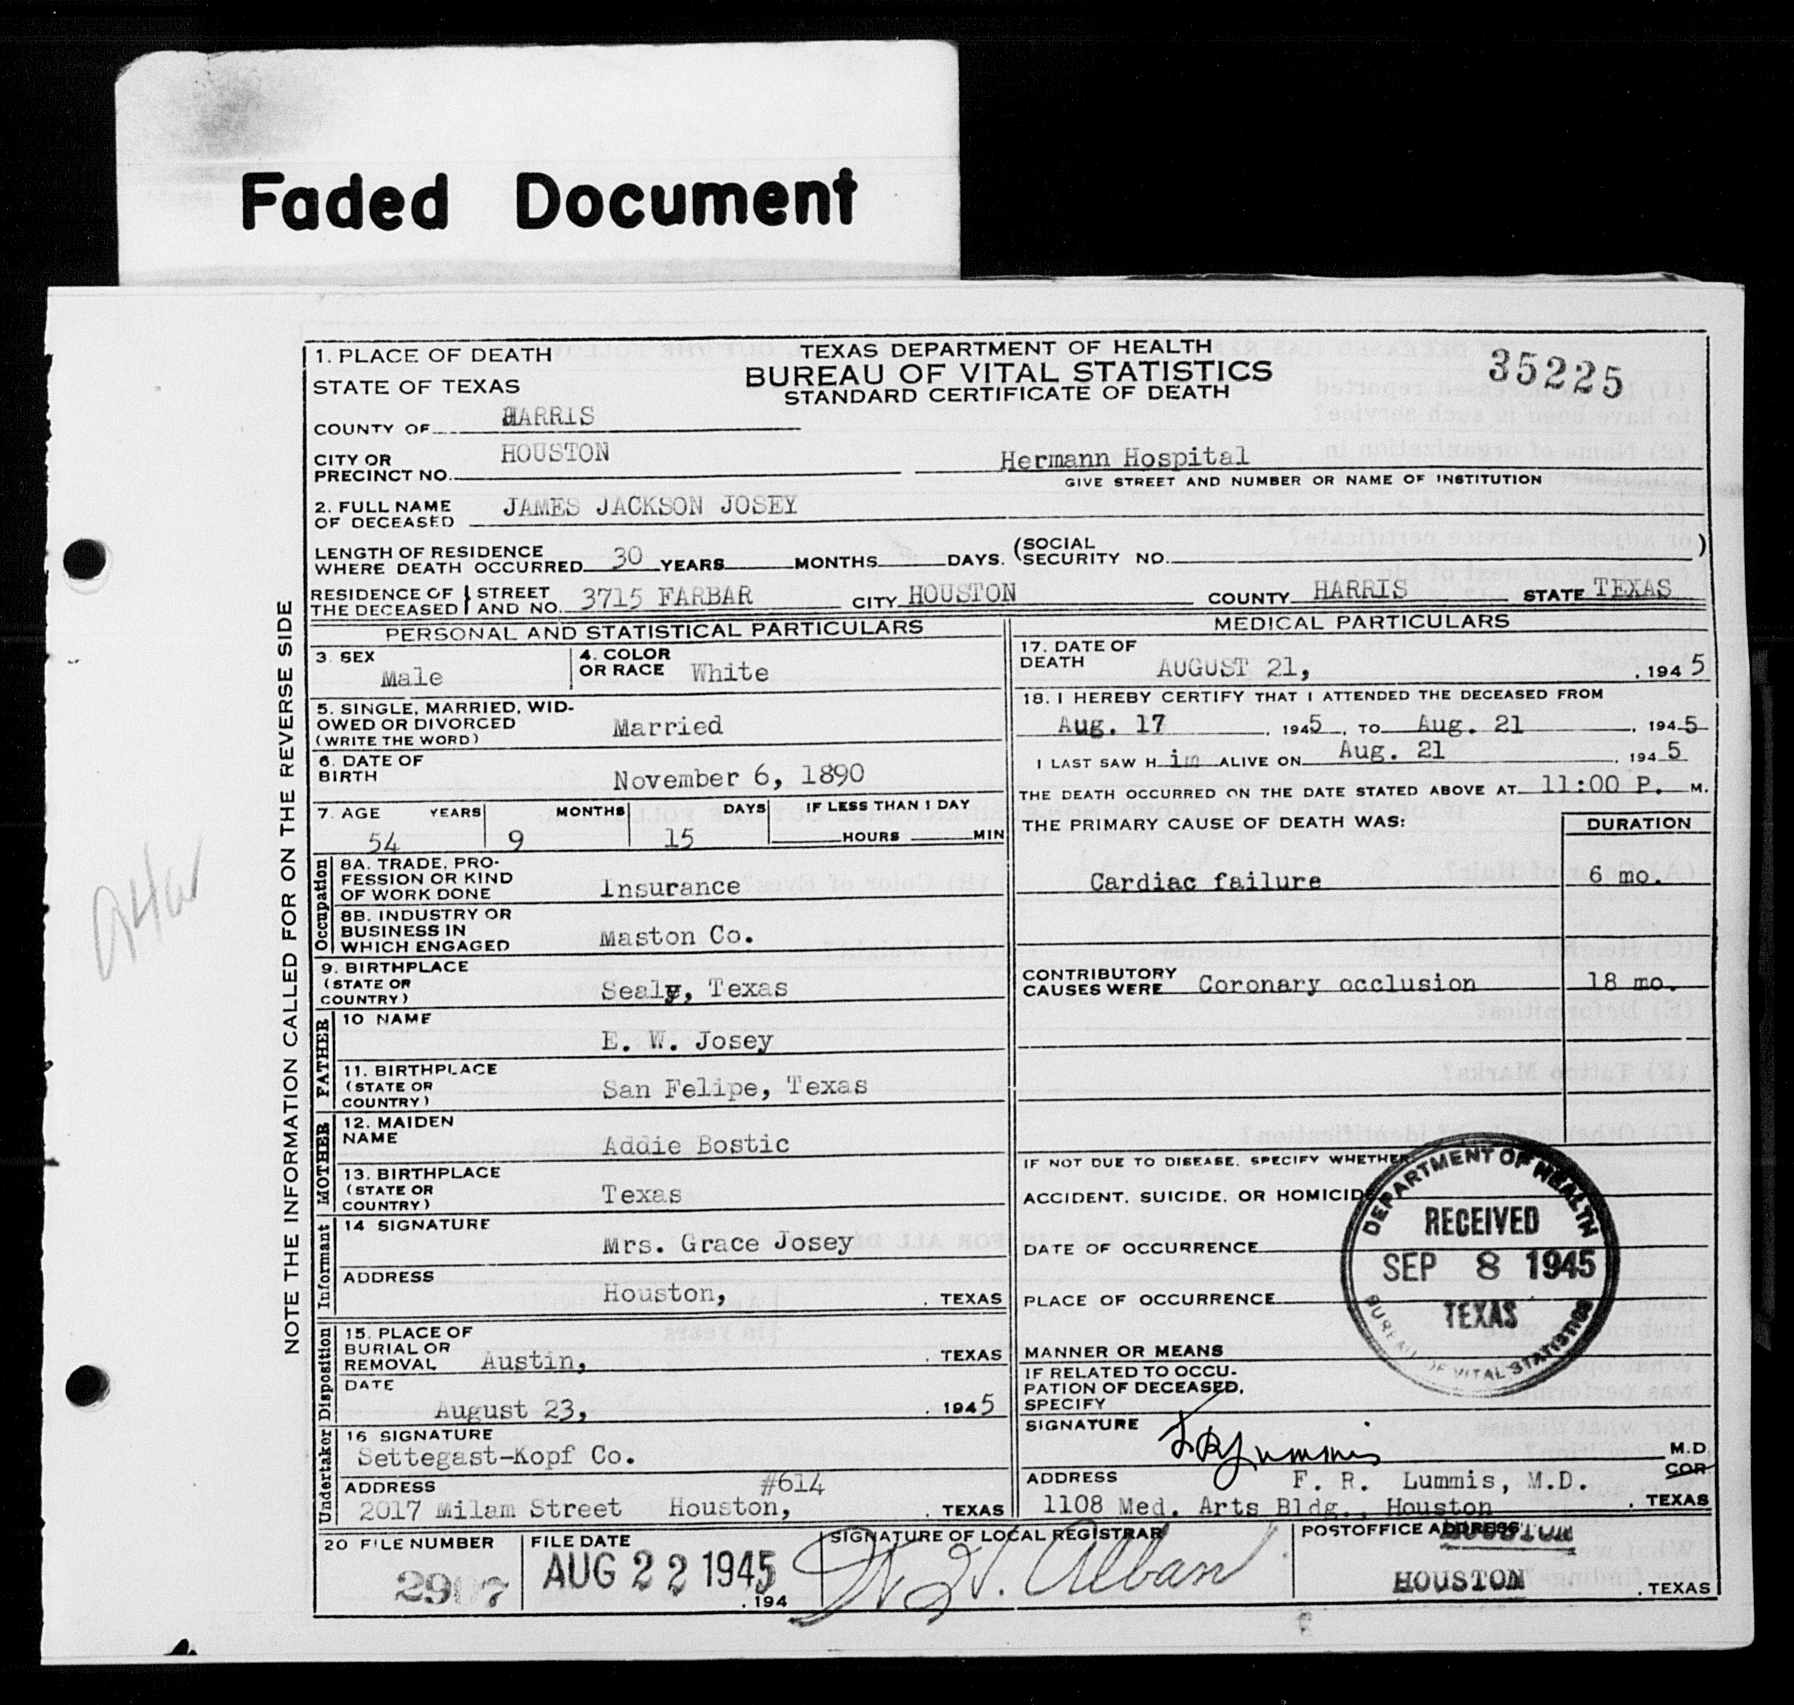 Faded Document
NOTE THE INFORMATION CALLED FOR ON THE REVERSE SIDE
1. PLACE OF DEATH
STATE OF TEXAS
TEXAS DEPARTMENT OF HEALTH
BUREAU OF VITAL STATISTICS
STANDARD CERTIFICATE OF DEATH
35225
COUNTY OF HARRIS
CITY OR PRECINCT NO. HOUSTON
Hermann Hospital
GIVE STREET AND NUMBER OR NAME OF INSTITUTION
2. FULL NAME OF DECEASED JAMES JACKSON JOSEY
LENGTH OF RESIDENCE WHERE DEATH OCCURRED 30 YEARS MONTHS DAYS. (SOCIAL SECURITY NO. )
RESIDENCE OF THE DECEASED STREET AND NO. 3715 FARBAR CITY HOUSTON COUNTY HARRIS STATE TEXAS
PERSONAL AND STATISTICAL PARTICULARS
3. SEX Male
4. COLOR OR RACE White
5. SINGLE, MARRIED, WIDOWED OR DIVORCED (WRITE THE WORD) Married
6. DATE OF BIRTH November 6, 1890
7. AGE YEARS MONTHS DAYS IF LESS THAN 1 DAY
54 9 15 HOURS MIN
Occupation
8A. TRADE, PROFESSION OR KIND OF WORK DONE Insurance
8B. INDUSTRY OR BUSINESS IN WHICH ENGAGED Maston Co.
9. BIRTHPLACE (STATE OR COUNTRY) Sealy, Texas
FATHER
10 NAME E. W. Josey
11. BIRTHPLACE (STATE OR COUNTRY) San Felipe, Texas
MOTHER
12. MAIDEN NAME Addie Bostic
13. BIRTHPLACE (STATE OR COUNTRY) Texas
Informant
14 SIGNATURE Mrs. Grace Josey
ADDRESS Houston, , TEXAS
Disposition
15. PLACE OF BURIAL OR REMOVAL Austin, , TEXAS
DATE August 23, , 1945
Undertaker
16 SIGNATURE
Settegast-Kopf Co.
ADDRESS #614
2017 Milam Street Houston, , TEXAS
MEDICAL PARTICULARS
17. DATE OF DEATH AUGUST 21, , 1945
18. I HEREBY CERTIFY THAT I ATTENDED THE DECEASED FROM
Aug. 17 , 1945, TO Aug. 21 , 1945
I LAST SAW H im ALIVE ON Aug. 21 , 1945
THE DEATH OCCURRED ON THE DATE STATED ABOVE AT 11:00 P. M.
THE PRIMARY CAUSE OF DEATH WAS: DURATION
Cardiac failure 6 mo.
CONTRIBUTORY CAUSES WERE Coronary occlusion 18 mo.
IF NOT DUE TO DISEASE, SPECIFY WHETHER
ACCIDENT, SUICIDE, OR HOMICIDE
DATE OF OCCURRENCE
PLACE OF OCCURRENCE
MANNER OR MEANS
IF RELATED TO OCCUPATION OF DECEASED, SPECIFY
DEPARTMENT OF HEALTH
RECEIVED
SEP 8 1945
TEXAS
BUREAU OF VITAL STATISTICS
SIGNATURE F R Lummis M.D
COR
ADDRESS F. R. Lummis, M.D.
1108 Med. Arts Bldg., Houston , TEXAS
20 FILE NUMBER 2907
FILE DATE AUG 22 1945 , 194
SIGNATURE OF LOCAL REGISTRAR
POSTOFFICE ADDRESS HOUSTON
HOUSTON , TEXAS